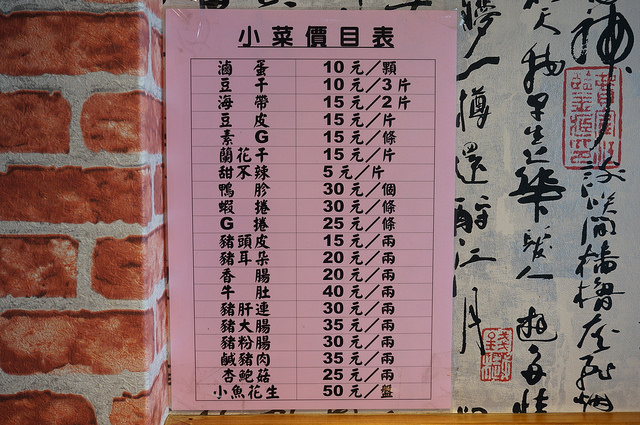 小菜價目表
滷蛋 10元／顆
豆干 10元／3片
海帶 15元／2片
豆皮 15元／片
素G 15元／條
蘭花干 15元／片
甜不辣 5元／片
鴨胗 30元／個
蝦捲 30元／條
G捲 25元／條
豬頭皮 15元／兩
豬耳朵 20元／兩
香腸 20元／兩
牛肚 40元／兩
豬肝連 30元／兩
豬大腸 35元／兩
豬粉腸 30元／兩
鹹豬肉 35元／兩
杏鮑菇 25元／兩
小魚花生 50元／盤
夢
一樽還酹江月